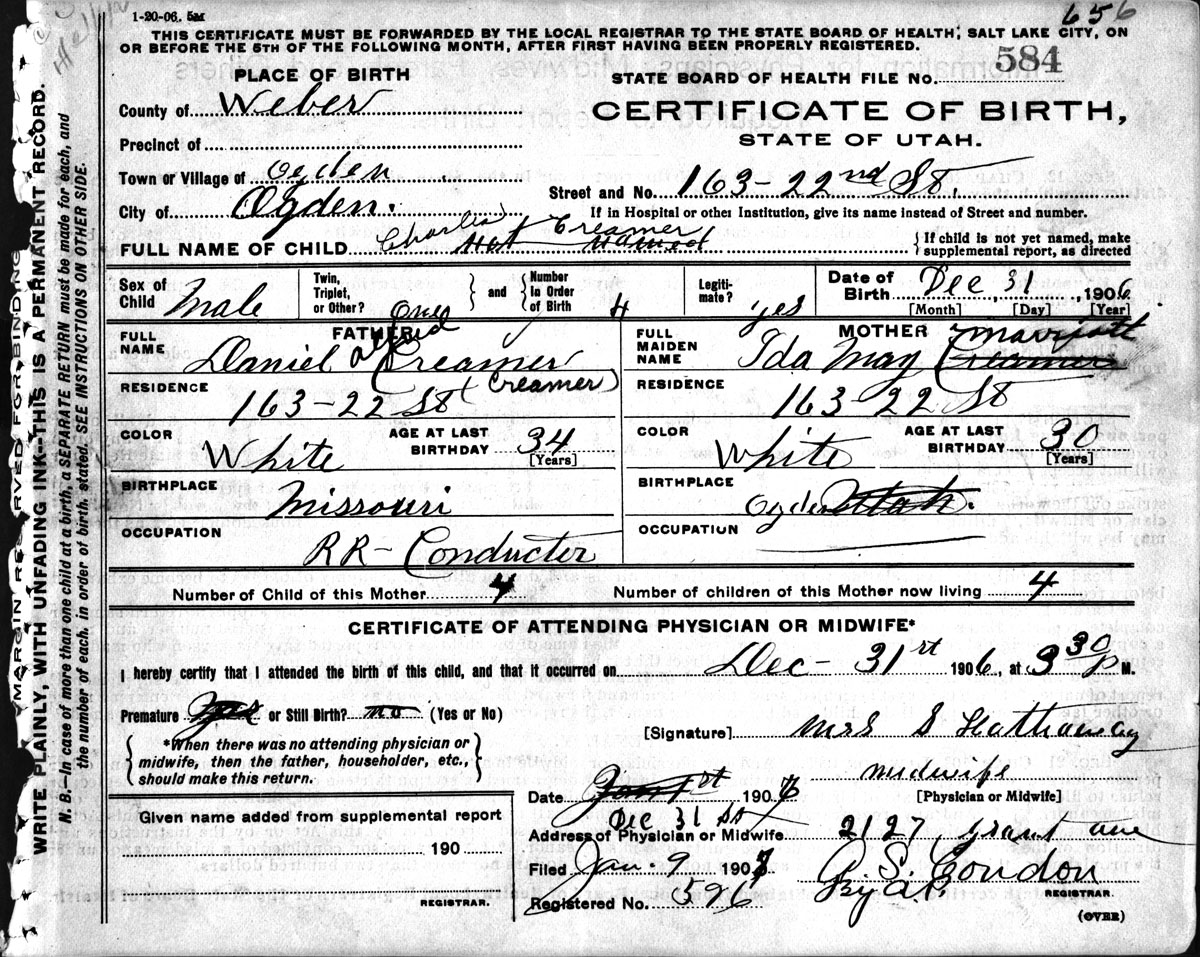 1-20-06. 5M
656
THIS CERTIFICATE MUST BE FORWARDED BY THE LOCAL REGISTRAR TO THE STATE BOARD OF HEALTH, SALT LAKE CITY, ON
OR BEFORE THE 5TH OF THE FOLLOWING MONTH, AFTER FIRST HAVING BEEN PROPERLY REGISTERED.
584
PLACE OF BIRTH
STATE BOARD OF HEALTH FILE No.
County of Weber
CERTIFICATE OF BIRTH,
STATE OF UTAH.
Precinct of
Town or Village of Ogden
Street and No. 163-22nd St.
City of Ogden.
If in Hospital or other Institution, give its name instead of Street and number.
FULL NAME OF CHILD Charles Creamer
Not named
If child is not yet named, make
supplemental report, as directed
Sex of Child Male
Twin, Triplet, or Other? One
and
Number In Order of Birth 4
Legitimate? yes
Date of Birth Dec, 31, 1906
[Month] [Day] [Year]
FATHER
FULL NAME Daniel Alfred Creamer
(Creamer)
RESIDENCE 163-22 St
COLOR White
AGE AT LAST BIRTHDAY 34
[Years]
BIRTHPLACE Missouri
OCCUPATION RR- Conductor
MOTHER
FULL MAIDEN NAME Ida May Creamer
RESIDENCE 163-22 St
COLOR White
AGE AT LAST BIRTHDAY 30
[Years]
BIRTHPLACE Ogden Utah.
OCCUPATION
Number of Child of this Mother 4
Number of children of this Mother now living 4
CERTIFICATE OF ATTENDING PHYSICIAN OR MIDWIFE*
I hereby certify that I attended the birth of this child, and that it occurred on Dec- 31st 1906, at 3 30 P M.
Premature or Still Birth? no (Yes or No)
[Signature] Mrs S Hathaway
*When there was no attending physician or
midwife, then the father, householder, etc.,
should make this return.
midwife
[Physician or Midwife]
Date Jan 1st 1907
Dec 31 St
Address of Physician or Midwife 2127, Grant ave
Given name added from supplemental report
190
REGISTRAR.
Filed Jan. 9 1907
Registered No. 596
A. S. Condon
REGISTRAR.
(OVER)
(MARGIN RESERVED FOR BINDING)
WRITE PLAINLY, WITH UNFADING INK—THIS IS A PERMANENT RECORD.
N. B.—In case of more than one child at a birth, a SEPARATE RETURN must be made for each, and
the number of each, in order of birth, stated. SEE INSTRUCTIONS ON OTHER SIDE.